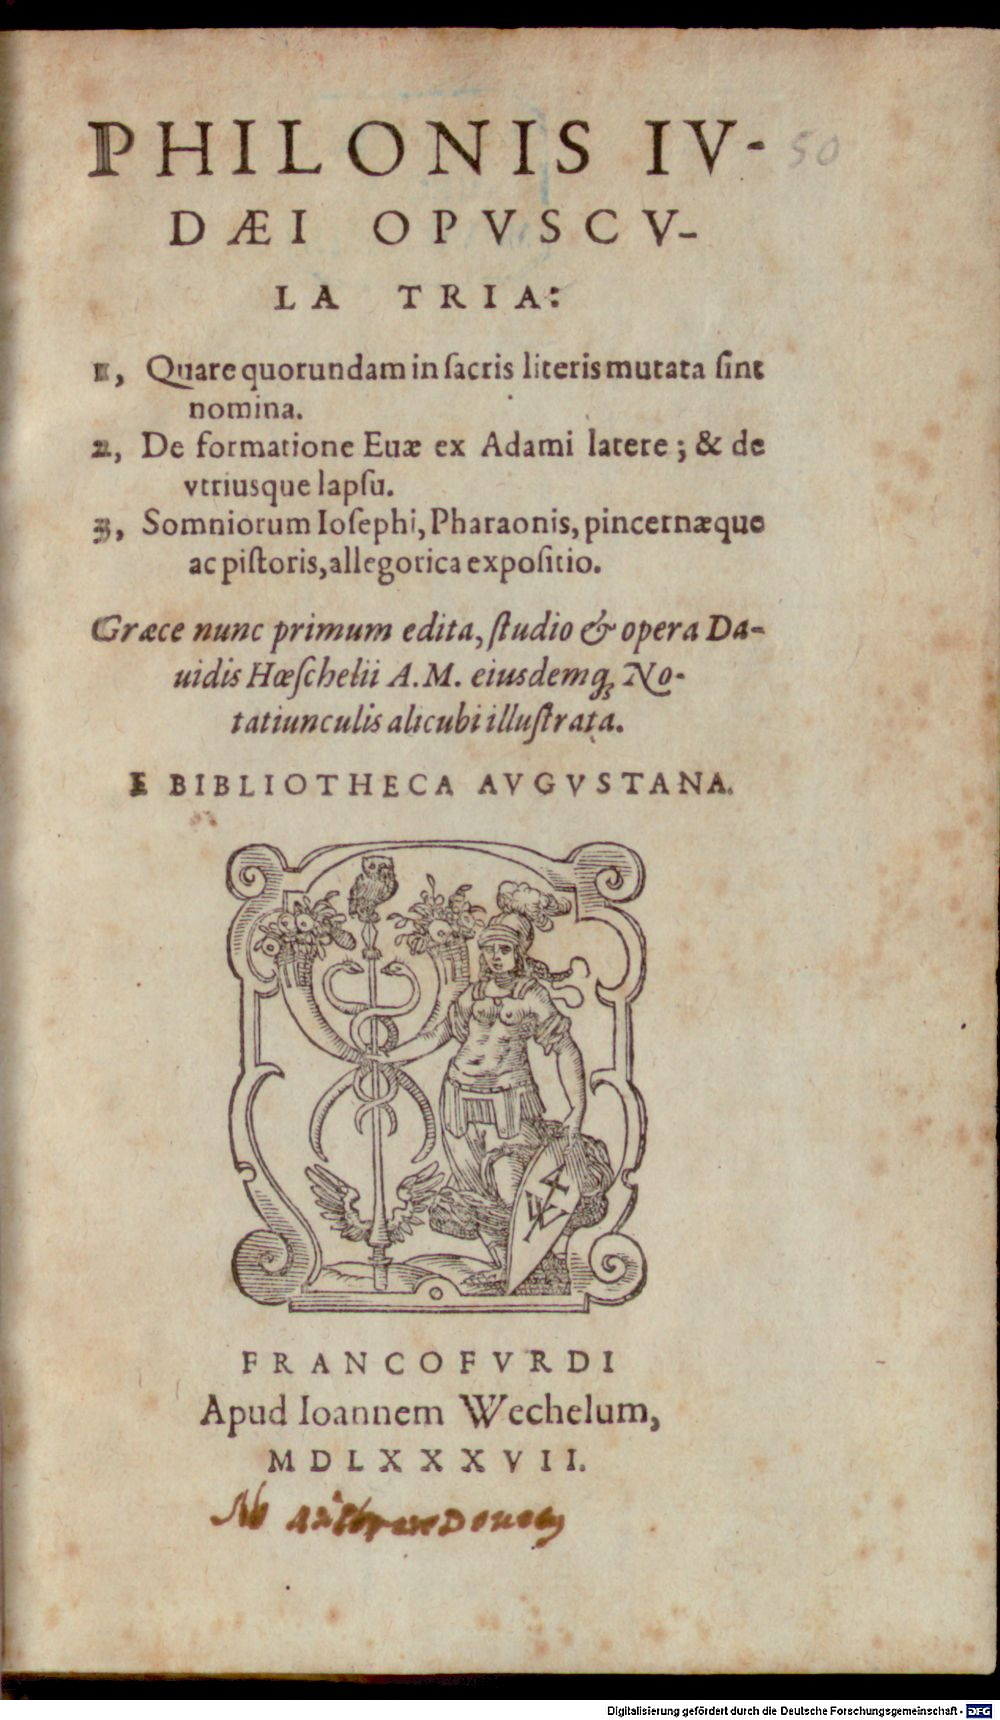 PHILONIS IV-
50
DÆI OPVSCV-
LA TRIA:
1, Quare quorundam in ſacris literis mutata ſint
nomina.
2, De formatione Euæ ex Adami latere; & de
vtriusque lapſu.
3, Somniorum Ioſephi, Pharaonis, pincernæque
ac piſtoris, allegorica expoſitio.
Græce nunc primum edita, ſtudio & opera Da-
uidis Hœſchelii A.M. eiusdemq́; No-
tatiunculis alicubi illuſtrata.
E BIBLIOTHECA AVGVSTANA.
FRANCOFVRDI
Apud Ioannem Wechelum,
MDLXXXVII.
Digitalisierung gefördert durch die Deutsche Forschungsgemeinschaft - DFG